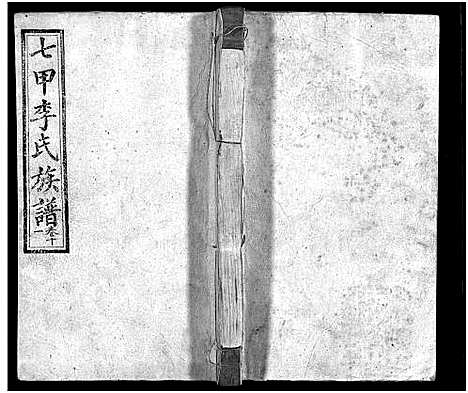 七甲李氏族譜
卷十一